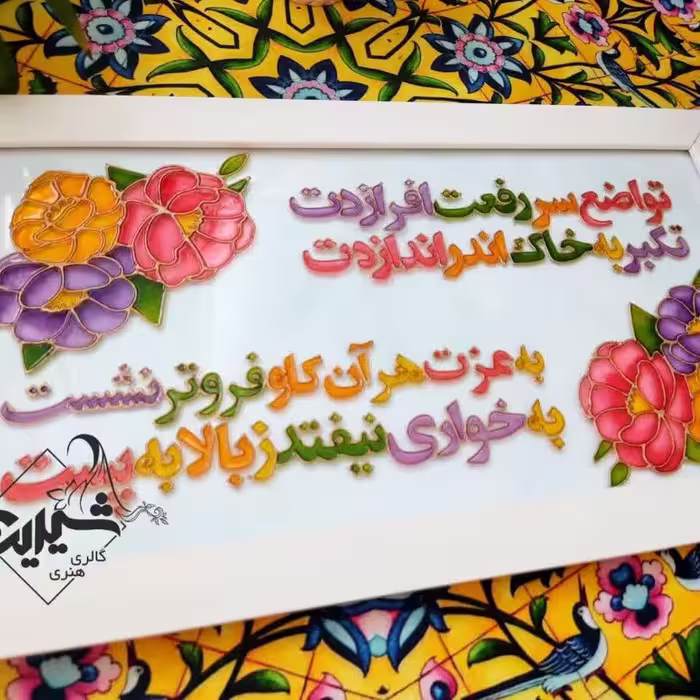 تواضع سر رفعت افرازدت
تکبر به خاک اندر اندازدت
به عزت هر آن کاو فروتر نشست
به خواری نیفتد ز بالا به پست
گالری
هنری